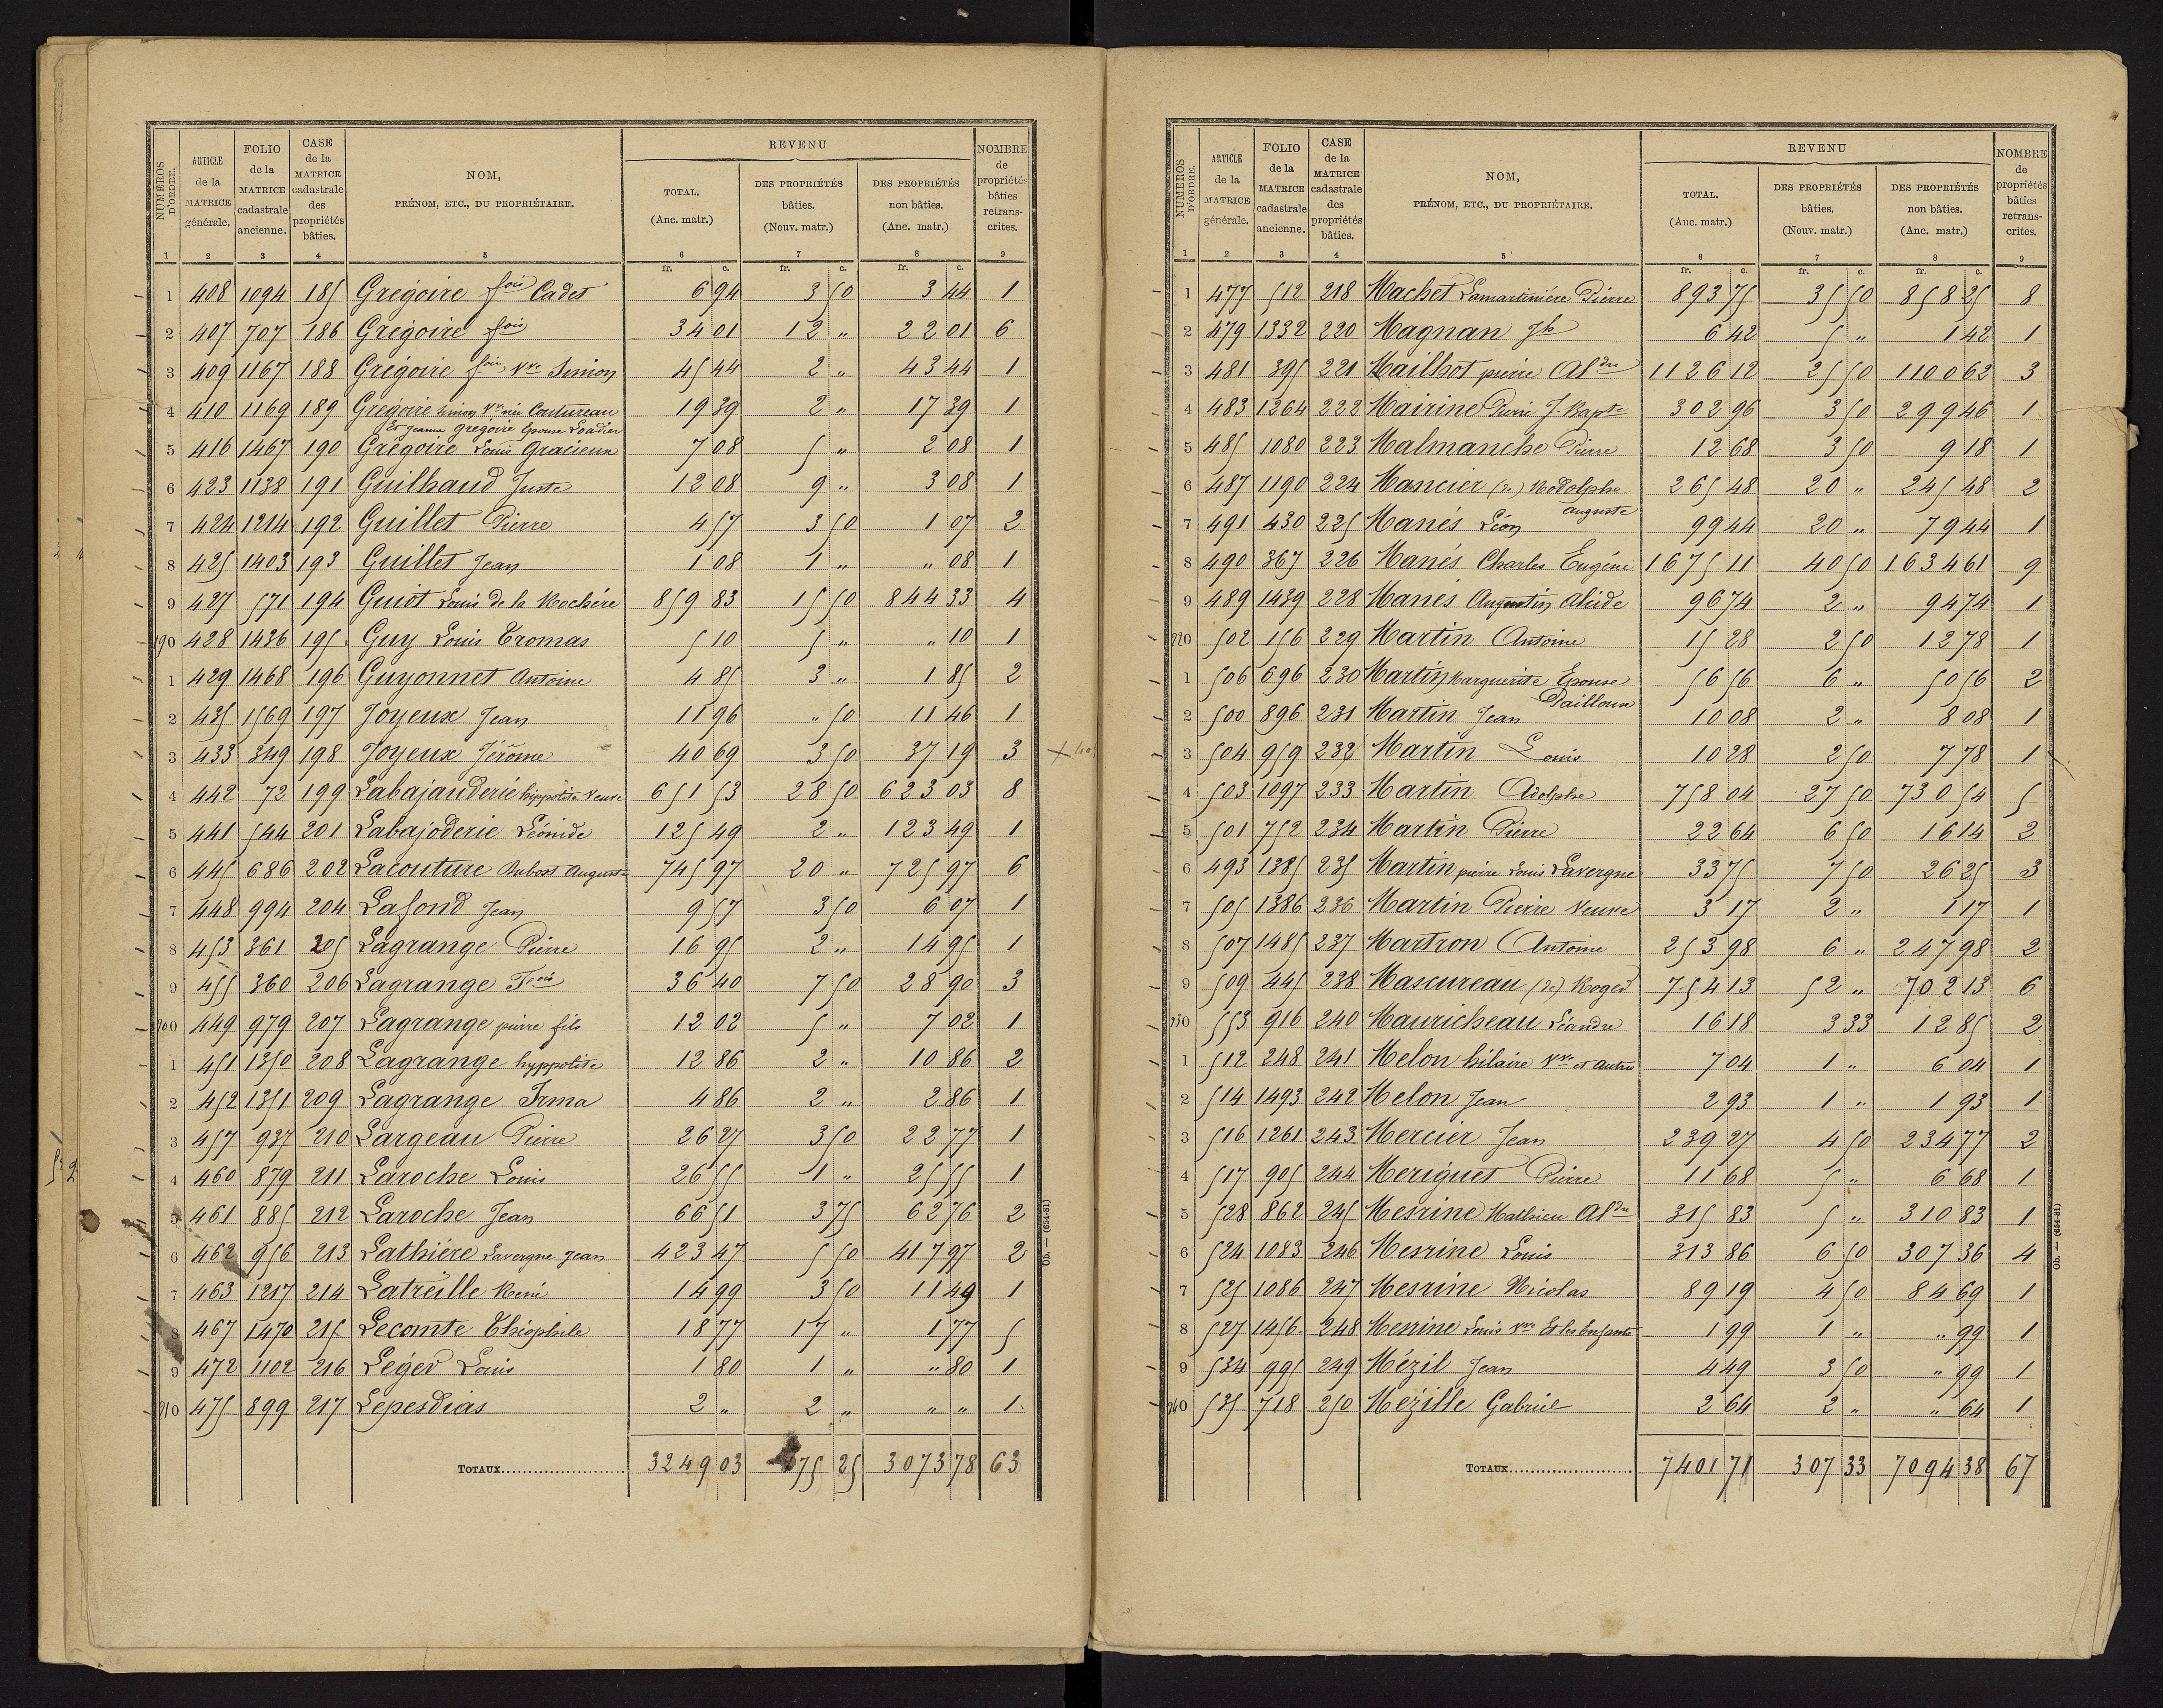 NUMÉROS D'ORDRE. | ARTICLE de la MATRICE générale. | FOLIO de la MATRICE cadastrale ancienne. | CASE de la MATRICE cadastrale des propriétés bâties. | NOM, PRÉNOM, ETC., DU PROPRIÉTAIRE. | REVENU | NOMBRE de propriétés bâties retranscrites.
TOTAL. (Anc. matr.) | DES PROPRIÉTÉS bâties. (Nouv. matr.) | DES PROPRIÉTÉS non bâties. (Anc. matr.)
1 2 3 4 5 6 7 8 9
fr. c. fr. c. fr. c.
1 408 1094 185 Grégoire fois Cadet 6 94 3 50 3 44 1
2 407 707 186 Grégoire fois 34 01 12 " 22 01 6
3 409 1167 188 Grégoire fois Vve Simion 45 44 2 " 43 44 1
4 410 1169 189 Grégoire Simon Vve née Coutureau 19 39 2 " 17 39 1
Et Jeanne Gregoire Epouse Loadier
5 416 1467 190 Grégoire Louis Gracieux 7 08 5 " 2 08 1
6 423 1138 191 Guilhaud Juste 12 08 9 " 3 08 1
7 424 1214 192 Guillet Pierre 4 57 3 50 1 07 2
8 425 1403 193 Guillet Jean 1 08 1 " " 08 1
9 427 571 194 Guiot Louis de la Rochère 859 83 15 50 844 33 4
190 428 1436 195 Guy Louis Tromas 5 10 5 " " 10 1
1 429 1468 196 Guyonnet Antoine 4 85 3 " 1 85 2
2 435 1569 197 Joyeux Jean 11 96 " 50 11 46 1
3 433 349 198 Joyeux Jérôme 40 69 3 50 37 19 3
4 442 72 199 Labajauderie hippolite Veuve 651 53 28 50 623 03 8
5 441 544 201 Labajoderie Léonide 125 49 2 " 123 49 1
6 445 686 202 Lacouture Dubost August 745 97 20 " 725 97 6
7 448 994 204 Lafond Jean 9 57 3 50 6 07 1
8 453 361 205 Lagrange Pierre 16 95 2 " 14 95 1
9 455 360 206 Lagrange Fois 36 40 7 50 28 90 3
200 449 979 207 Lagrange pierre fils 12 02 5 " 7 02 1
1 451 1350 208 Lagrange hyppolite 12 86 2 " 10 86 2
2 452 1351 209 Lagrange Irma 4 86 2 " 2 86 1
3 457 937 210 Largeau Pierre 26 27 3 50 22 77 1
4 460 879 211 Laroche Louis 26 55 1 " 25 55 1
5 461 885 212 Laroche Jean 66 51 3 75 62 76 2
6 462 956 213 Lathière Lavergne Jean 423 47 5 50 417 97 2
7 463 1217 214 Latreille René 14 99 3 50 11 49 1
8 467 1470 215 Lecomte Théophile 18 77 17 " 1 77 5
9 472 1102 216 Léger Louis 1 80 1 " " 80 1
210 475 899 217 Lepesdias 2 " 2 " " " 1
TOTAUX 3249 03 175 25 3073 78 63
Ob. — (654-81)
NUMÉROS D'ORDRE. | ARTICLE de la MATRICE générale. | FOLIO de la MATRICE cadastrale ancienne. | CASE de la MATRICE cadastrale des propriétés bâties. | NOM, PRÉNOM, ETC., DU PROPRIÉTAIRE. | REVENU | NOMBRE de propriétés bâties retranscrites.
TOTAL. (Anc. matr.) | DES PROPRIÉTÉS bâties. (Nouv. matr.) | DES PROPRIÉTÉS non bâties. (Anc. matr.)
1 2 3 4 5 6 7 8 9
fr. c. fr. c. fr. c.
1 477 512 218 Machet Lamartinière Pierre 893 75 35 50 858 25 8
2 479 1332 220 Magnan Jh 6 42 5 " 1 42 1
3 481 395 221 Mailhot pierre Aldre 1126 12 25 50 1100 62 3
4 483 1264 222 Mairine Pierre J. Bapte 302 96 3 50 299 46 1
5 485 1080 223 Malmanche Pierre 12 68 3 50 9 18 1
6 487 1190 224 Mancier (de) Rodolphe 265 48 20 " 245 48 2
auguste
7 491 430 225 Manès Léon 99 44 20 " 79 44 1
8 490 367 226 Manès Charles Eugène 1675 11 40 50 1634 61 9
9 489 1439 228 Manès Augustin Alcide 96 74 2 " 94 74 1
220 502 156 229 Martin Antoine 15 28 2 50 12 78 1
1 506 696 230 Martin Marguerite Epouse 56 56 6 " 50 56 2
Pailloux
2 500 896 231 Martin Jean 10 08 2 " 8 08 1
3 504 959 232 Martin Louis 10 28 2 50 7 78 1
4 503 1097 233 Martin Adolphe 758 04 27 50 730 54 5
5 501 752 234 Martin Pierre 22 64 6 50 16 14 2
6 493 1385 235 Martin pierre Louis Lavergne 33 75 7 50 26 25 3
7 505 1386 236 Martin Pierre Veuve 3 17 2 " 1 17 1
8 507 1485 237 Martron Antoine 253 98 6 " 247 98 2
9 509 445 238 Mascureau (de) Roger 754 13 52 " 702 13 6
230 553 916 240 Mauricheau Léandre 16 18 3 33 12 85 2
1 512 248 241 Melon hilaire Vve et autres 7 04 1 " 6 04 1
2 514 1493 242 Melon Jean 2 93 1 " 1 93 1
3 516 1261 243 Mercier Jean 239 27 4 50 234 77 2
4 517 905 244 Meriguet Pierre 11 68 5 " 6 68 1
5 528 862 245 Mesrine Mathieu Aldre 315 83 5 " 310 83 1
6 524 1083 246 Mesrine Louis 313 86 6 50 307 36 4
7 525 1086 247 Mesrine Nicolas 89 19 4 50 84 69 1
8 527 1456 248 Mesrine Louis Vve Et les Enfants 1 99 1 " " 99 1
9 534 995 249 Mézil Jean 4 49 3 50 " 99 1
240 535 718 250 Mézille Gabriel 2 64 2 " " 64 1
TOTAUX 7401 71 307 33 7094 38 67
Ob. — (654-81)